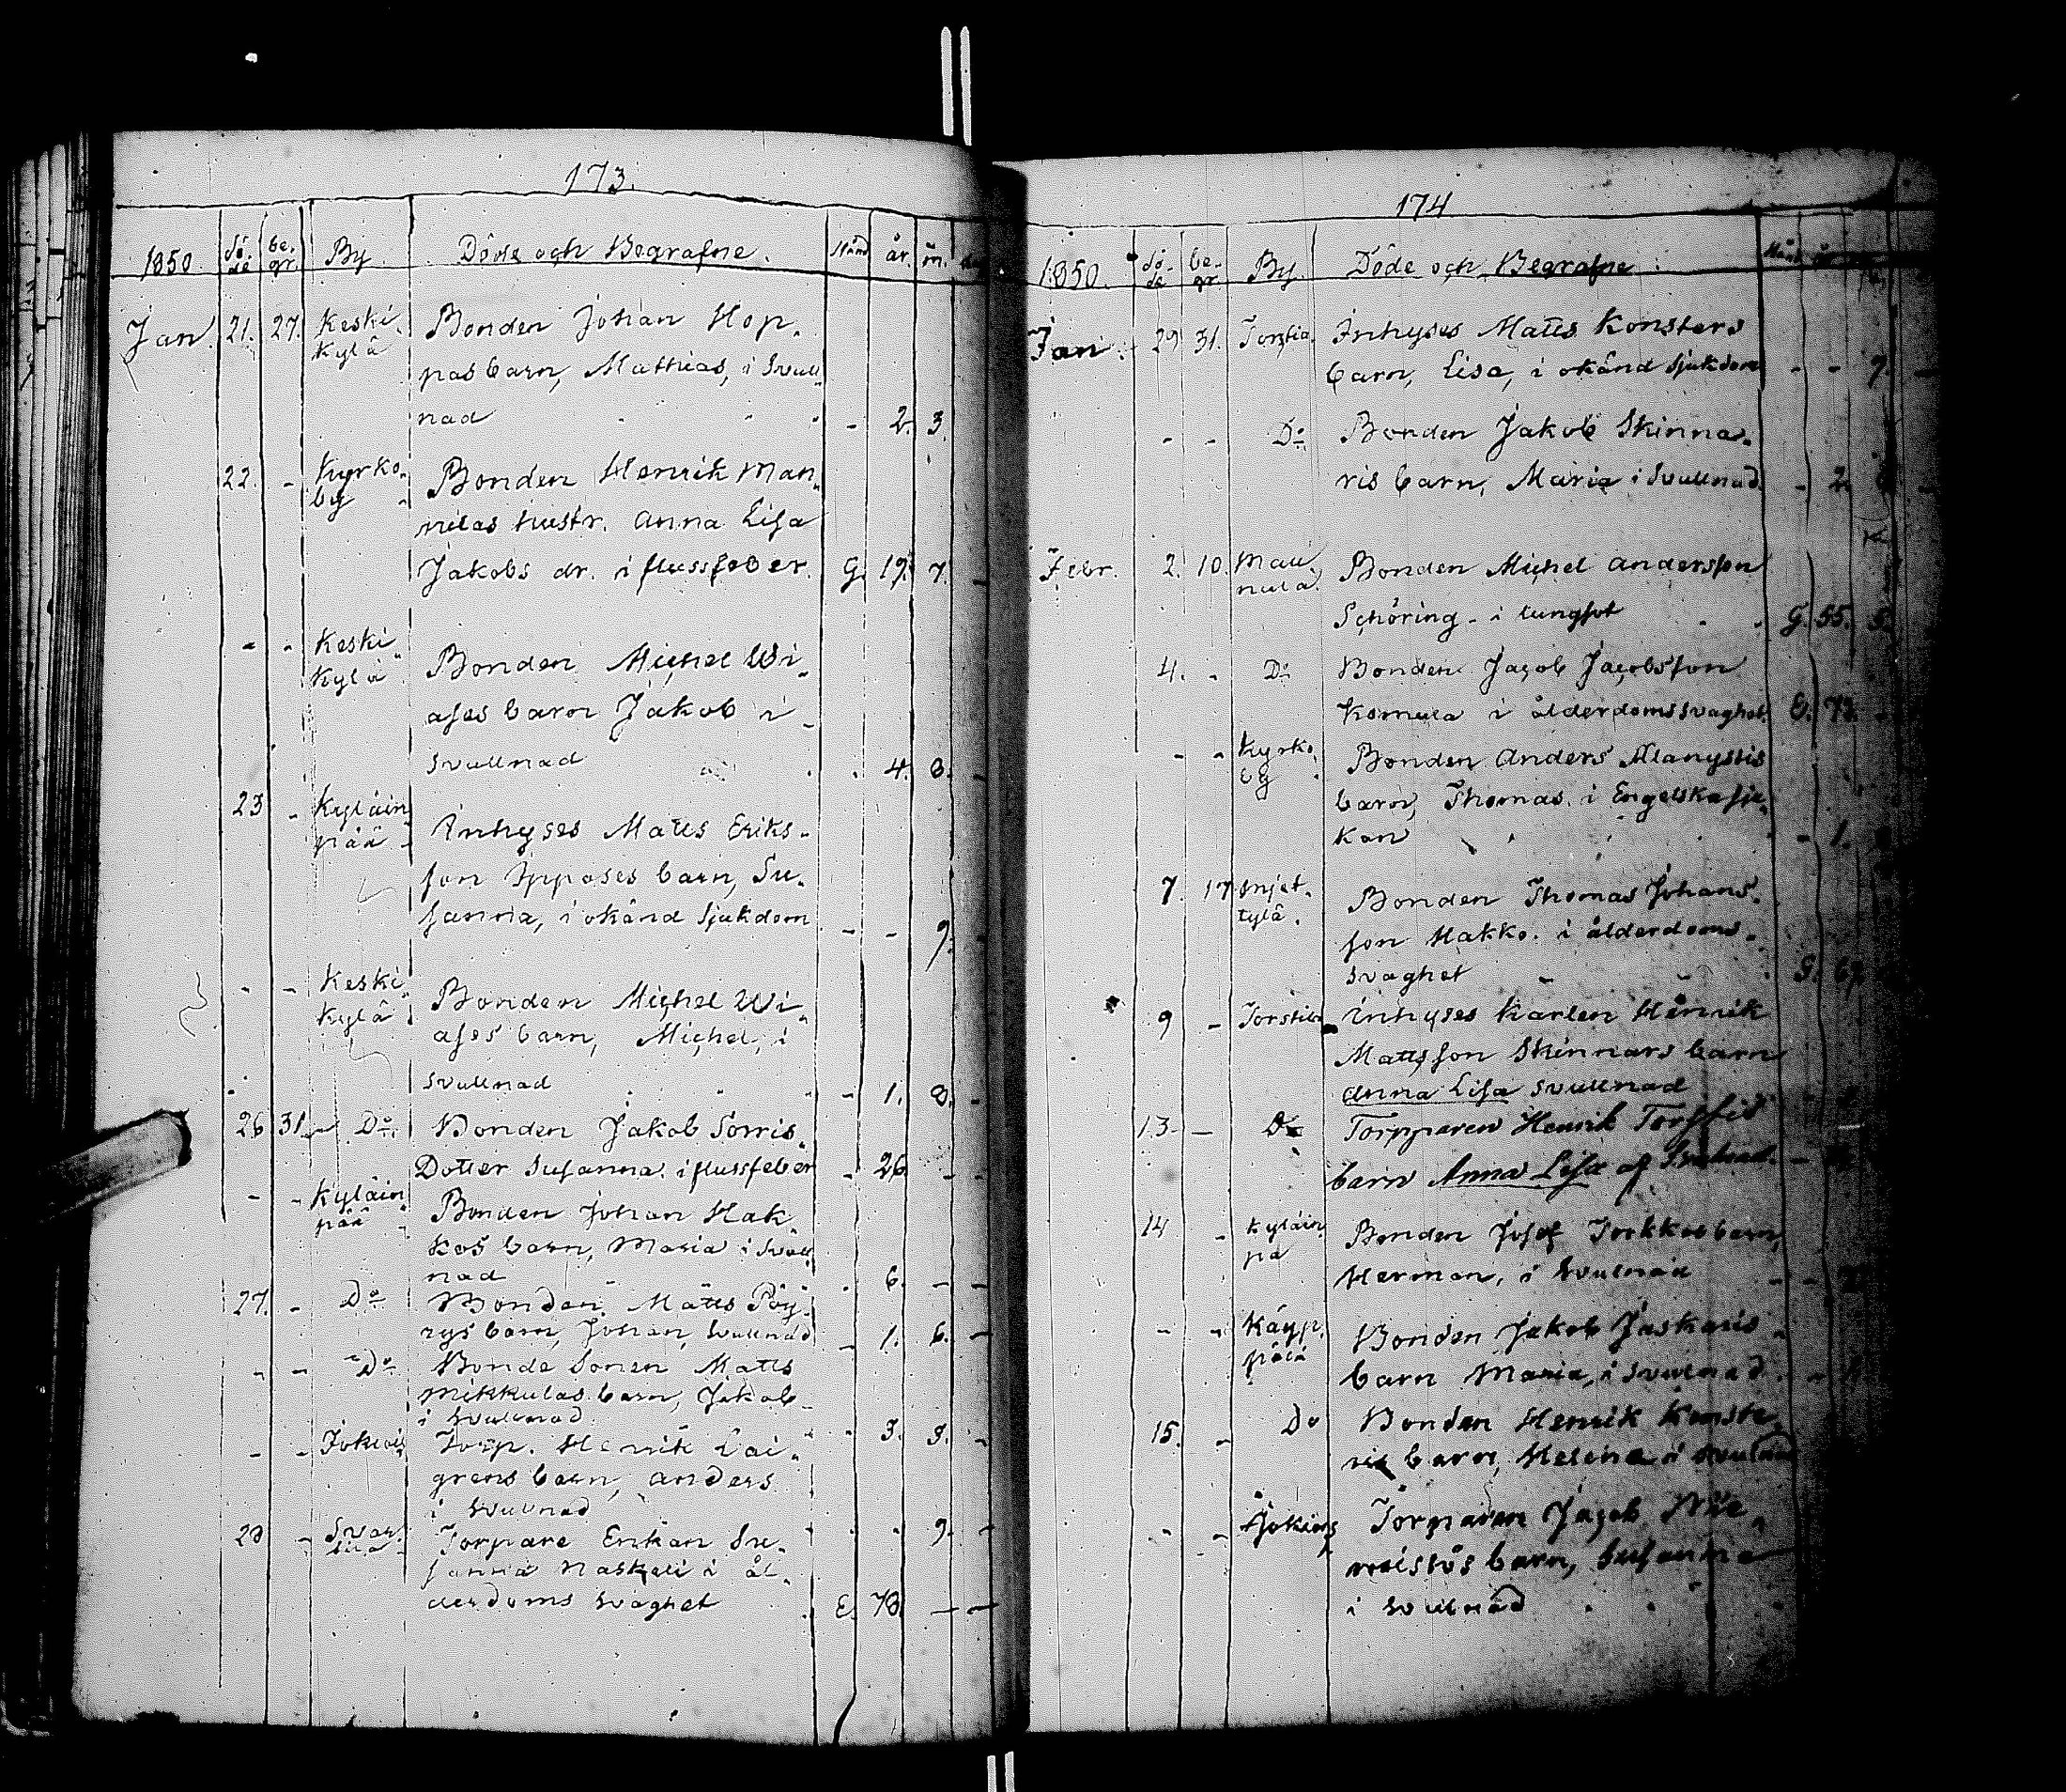 173.
1850. dö-de be-gr. By. Döde och Begrafne. Stånd år. m. dag
Jan. 21. 27. Keski- Bonden Johan Hop-
kylä pas barn, Mathias, i Svull-
nad - 2. 3.
22. - Kyrko- Bonden Henrik Man-
by nilas hustr. Anna Lisa
Jakobs dr. i flussfeber. G. 19. 7. -
- - Keski- Bonden Michel Wi-
kylä ases barn Jakob i
svullnad 4. 8. -
23 - Kyläin- Inhyses Matts Eriks-
pää son Ipposes barn, Su-
sanna, i okänd sjukdom - - 9. -
- - Keski- Bonden Michel Wi-
kylä ases barn, Michel, i
svullnad - 1. 8. -
26 31. Do Bonden Jakob Sorris
Dotter Susanna i flussfeber - 26. - -
- - Kyläin- Bonden Johan Hak-
pää kos barn, Maria i Svull-
nad 6. - -
27. - Do Bonden Matts Pöy-
rys barn, Johan, Svullnad - 1. 6. -
- - Do Bonde Sonen Matts
Mikkulas barn, Jakob
i Svullnad. 3. 8. -
- - Jokiois Torp. Henrik Lai-
grens barn, Anders
i Svulnad 9. -
28 - Torpare Enkan Su-
sanna Naskali i ål-
derdoms svaghet E. 78. - -
174
1850. dö-de be-gr. By. Döde och Begrafne.
Jan. 29 31. Torstia. Inhyses Matts Konsters
barn, Lisa, i okänd sjukdom - - 9. -
- - Do Bonden Jakob Skinna-
ris barn, Maria i Svullnad. - 2.
Febr. 2. 10. Mau- Bonden Michel Andersson
nula Schöring - i lungsot G. 55. 5.
4. - Do Bonden Jacob Jacobsson
Komula i ålderdomssvaghet. E. 73. -
- - Kyrko- Bonden Anders Alanystis
by barn, Thomas i Engelska sju-
kan - 1.
7. 17 Snjet- Bonden Thomas Johans-
tylä. son Hakko. i ålderdoms-
svaghet G. 67.
9 - Torstila Inhyses Karlen Henrik
Mattsson Skinnars barn
Anna Lisa svullnad
13. - Do Torpparen Henrik Torstis
barn Anna Lisa af Svulnad. -
14 - Kyläin- Bonden Josef Torkkos barn,
pä Herman, i Svulnad - -
- - Käyp- Bonden Jakob Jaskaris
pälä barn Maria, i Svulnad
15. - Do Bonden Henrik Konste-
ris barn, Helena i Svulnad
- - Jokiois Torparen Jacob Nie-
mistös barn, Susanna
i Svullnad